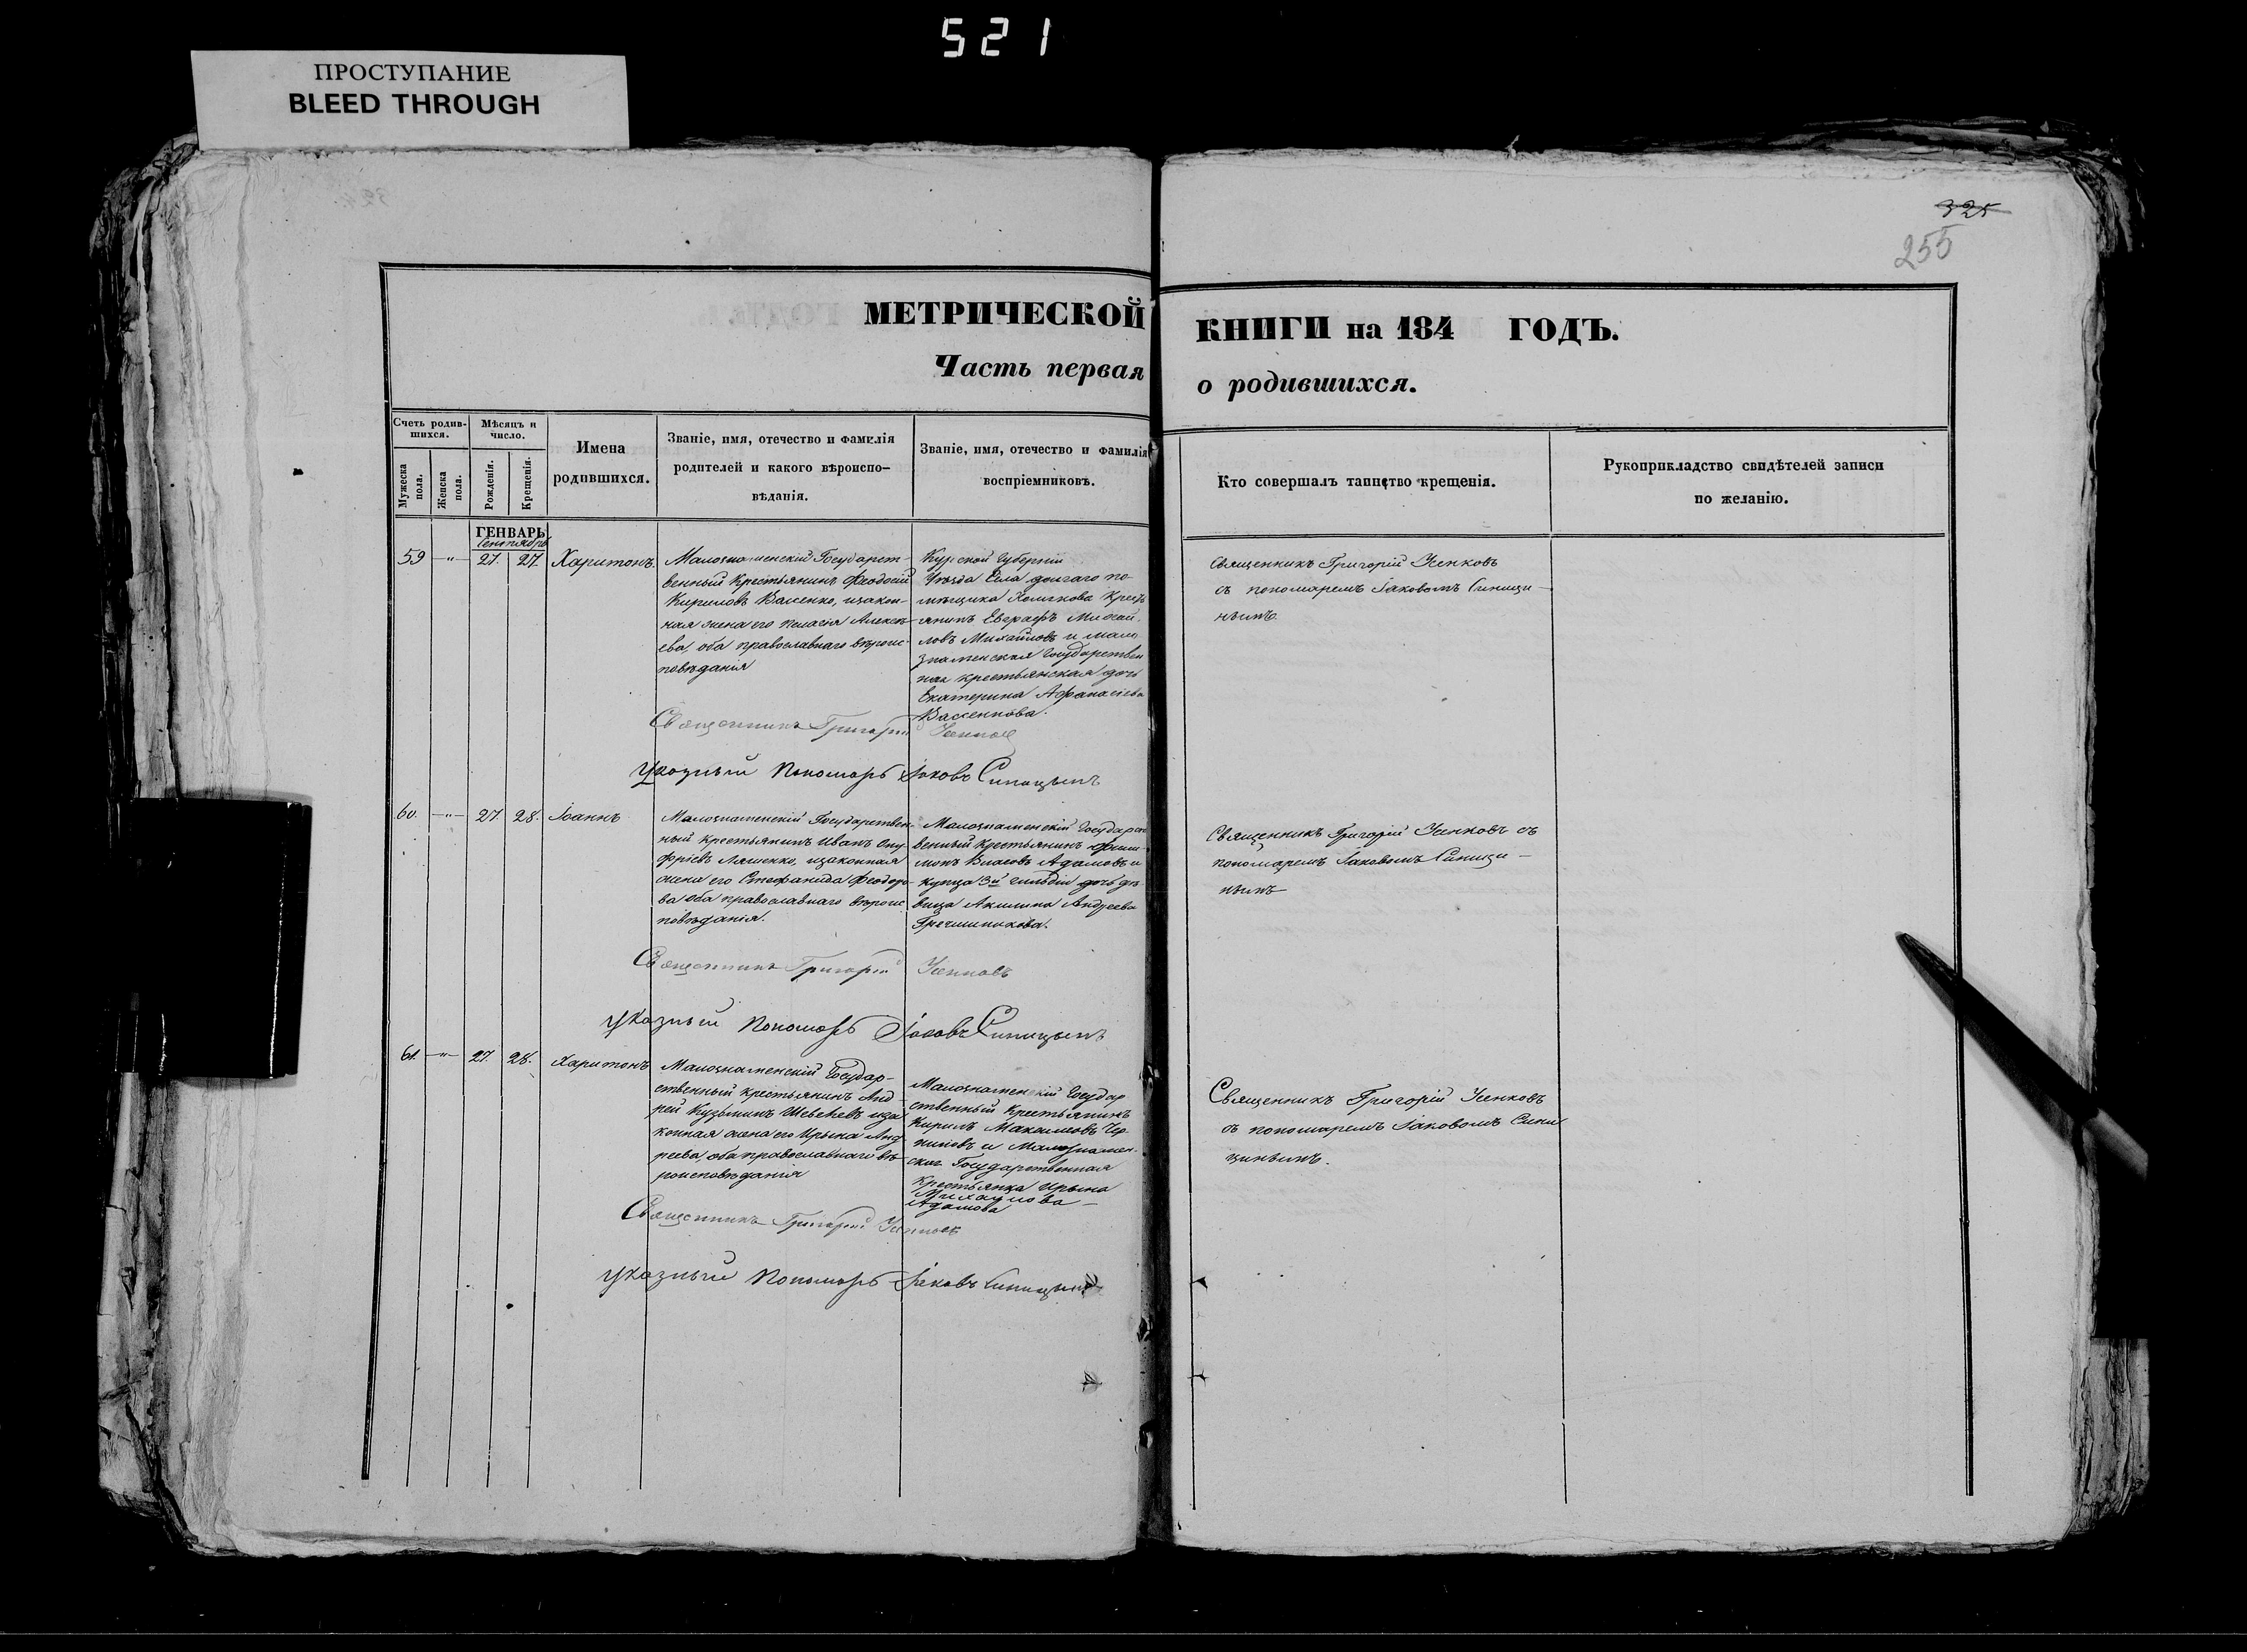 521
ПРОСТУПАНИЕ
BLEED THROUGH
325
255
МЕТРИЧЕСКОЙ КНИГИ на 184 ГОДЪ.
Часть первая о родившихся.
Счетъ родив-
шихся.
Мужеска пола.
Женска пола.
Мѣсяцъ и
число.
Рожденія.
Крещенія.
Имена
родившихся.
Званіе, имя, отечество и фамилія
родителей и какого вѣроиспо-
вѣданія.
Званіе, имя, отечество и фамилія
воспріемниковъ.
Кто совершалъ таинство крещенія.
Рукоприкладство свидѣтелей записи
по желанію.
ГЕНВАРЬ
Сентябрь
59 " 27. 27. Харитонъ.
Малознаменскій Государст-
венный Крестьянинъ Феодосій
Кириловъ Васенко, изакон-
ная жена его Пелагія Алексѣ-
ева, оба православнаго вѣроис-
повѣданія
Курской Губерніи
Уѣзда Села долгаго по-
мѣщика Хомякова Крест
янинъ Евграфъ Михай-
ловъ Михайловъ и мало
знаменская Государствен
ная крестьянская дочь
Екатерина Афанасіева
Васенкова.
Священникъ Григорій Усенковъ
съ пономаремъ Іаковомъ Синици-
нымъ
Священникъ Григорій Усенковъ
Указный Пономарь Іаковъ Синицынъ
60. " 27. 28. Іоаннъ
Малознаменскій Государствен-
ный крестьянинъ Иванъ Ону-
фріевъ Ляшенко, изаконная
жена его Стефанида Феодоро-
ва оба православнаго вѣроис
повѣданія.
Малознаменскій Государст
венный крестьянинъ Фили-
монъ Власовъ Адамовъ и
купца 3й гильдіи дочь дѣ-
вица Акилина Андреева
Гречишникова.
Священникъ Григорій Усенковъ съ
пономаремъ Іаковомъ Синици-
нымъ
Священникъ Григорій Усенковъ
указный Пономарь Іаковъ Синицынъ
61. " 27. 28. Харитонъ
Малознаменскій Государ-
ственный крестьянинъ Анд-
рей Кузьминъ Шевелевъ иза
конная жена его Ирына Анд
реева, оба православнаго вѣ-
роисповѣданія
Малознаменскій Государ
ственный Крестьянинъ
Кирилъ Максимовъ Чер-
никовъ и Малознамен-
ская Государственная
крестьянка Ирына
Михайлова
Адамова
Священникъ Григорій Усенковъ
съ пономаремъ Іаковомъ Сини
цинымъ.
Священникъ Григорій Усенковъ
указный Пономарь Іаковъ Синицынъ